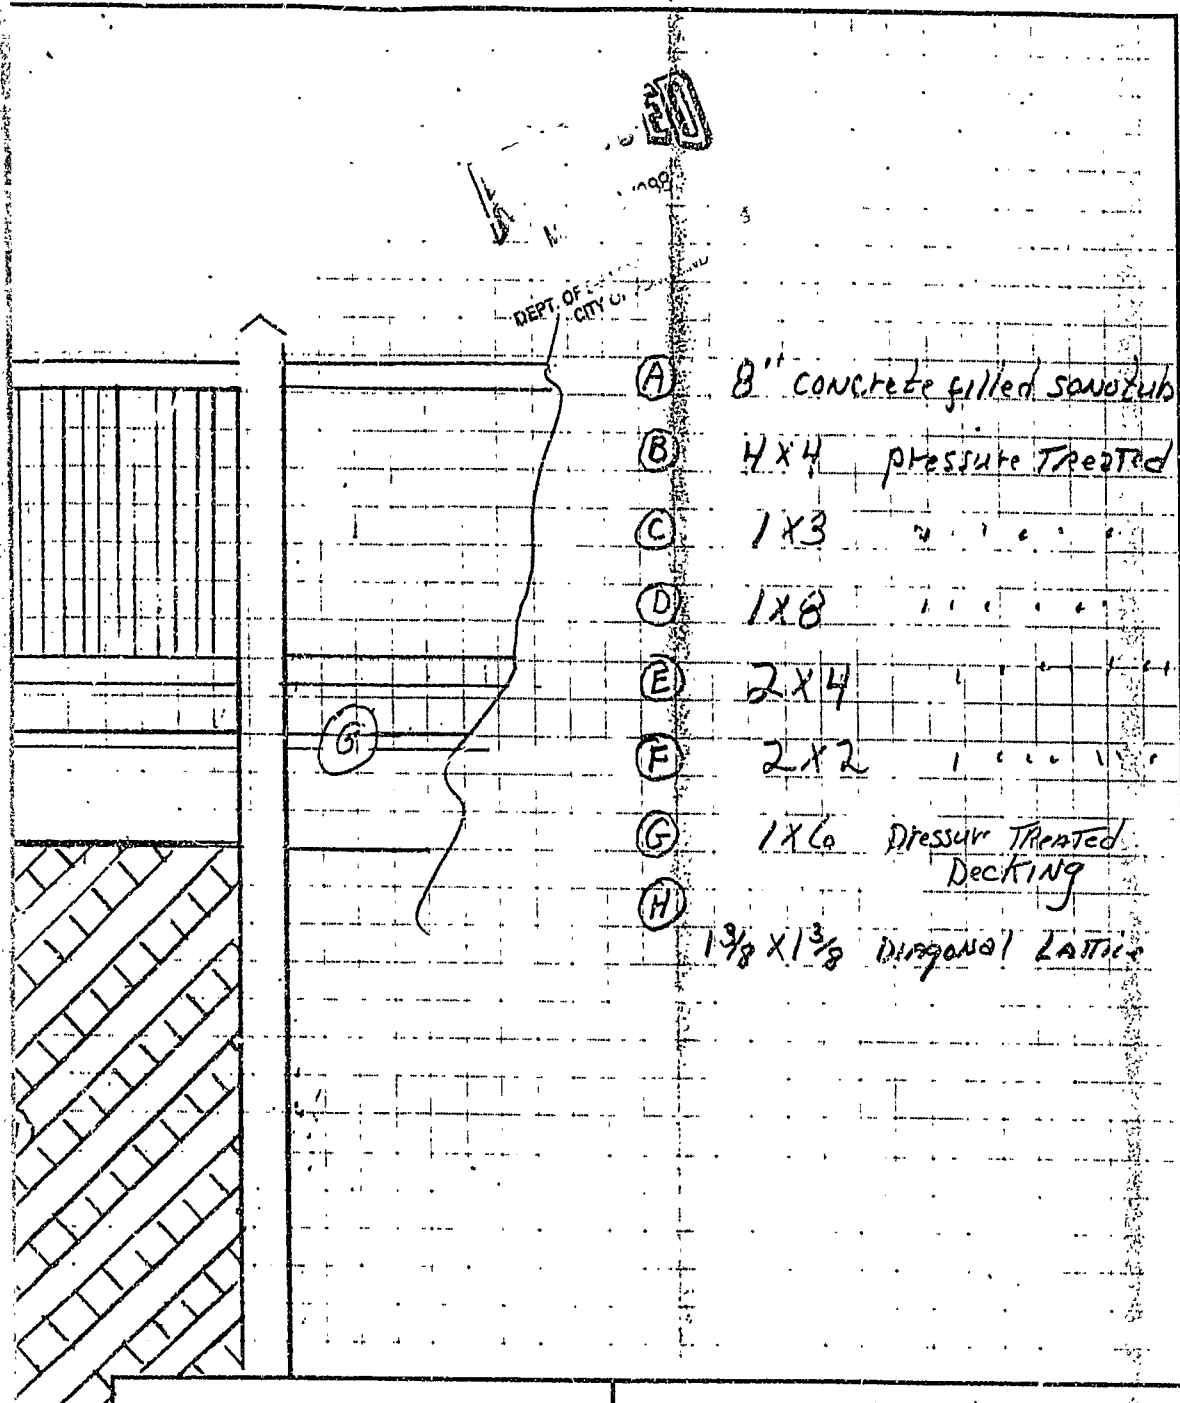 DEPT. OF
CITY OF
(A) 8" concrete filled sonotub
(B) 4x4 pressure Treated
(C) 1x3 " " " " " "
(D) 1x8 " " " " " "
(E) 2x4 " " " " " "
(F) 2x2 " " " " " "
(G) 1x6 Pressur Treated
Decking
(H)
1 3/8 x 1 3/8 Diagonal Lattice
G